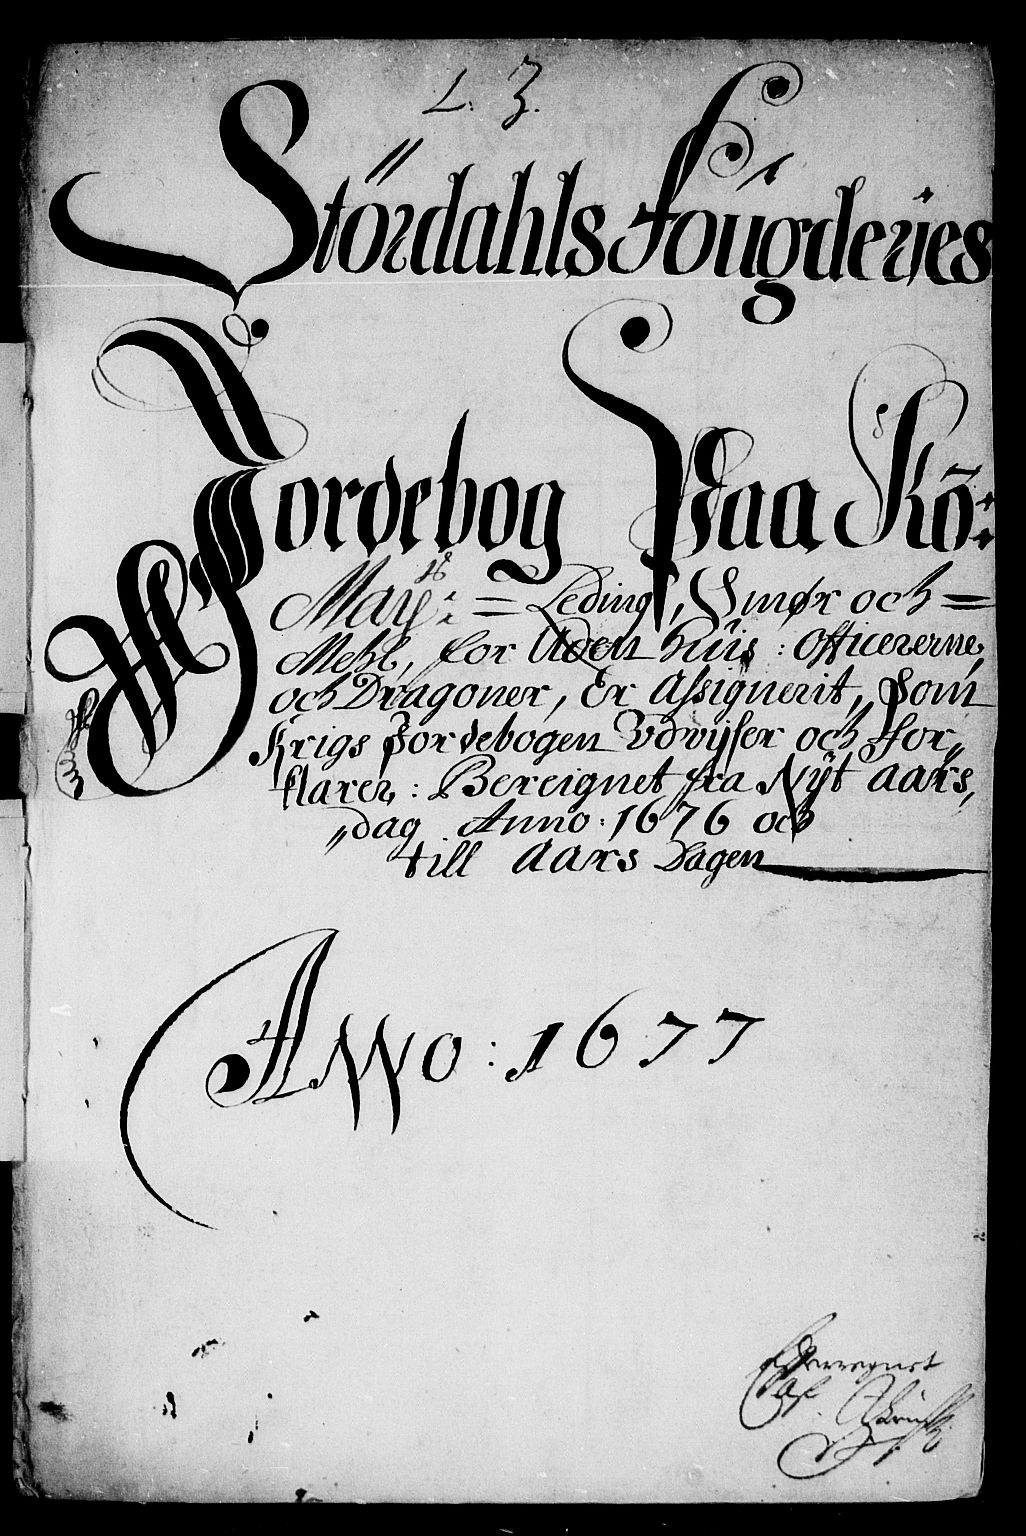 L. 3.
Stördahls Foúgderies
Jordebog Paa Kö:
Maÿ:ˢ = Leding, Smør och =
Mehl, for Uden húús: officererne,
och Dragoner, Er Assignerit, som
Krigs Jordebogen Udvÿser och for„
klarer: Bereignet fra Nÿt aars,
„dag Anno: 1676 och
till aars Dagen
ANNO: 1677
Offverregnet
af